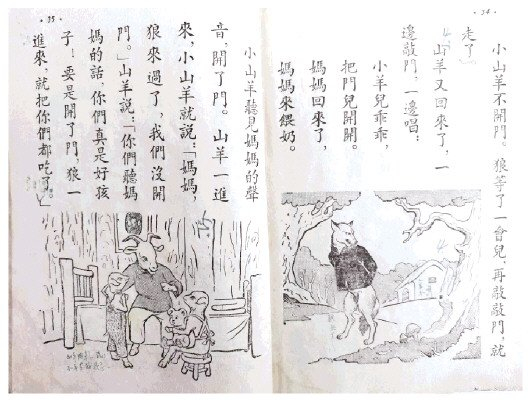 ·34·
小山羊不開門。狼等了一會兒,再敲敲門,就
走了。
山羊又回來了,一
邊敲門,一邊唱:
小羊兒乖乖,
把門兒開開。
媽媽回來了,
媽媽來餵奶。
·35·
小山羊聽見媽媽的聲
音,開了門。山羊一進
來,小山羊就說:「媽媽,
狼來過了,我們沒開
門。」山羊說:「你們聽媽
媽的話,你們真是好孩
子!要是開了門,狼一
進來,就把你們都吃了。」